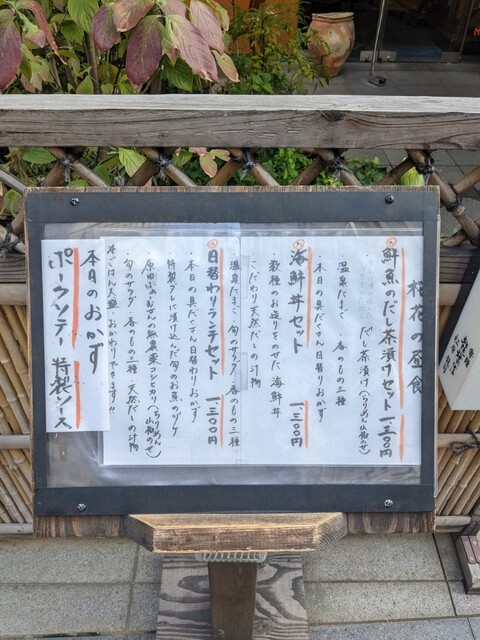 桜花の昼食
鮮魚のだし茶漬けセット 一、三〇〇円
だし茶漬け(ちりめん山椒のせ)
・温泉たまご・香のもの三種
・本日の具だくさん日替りおかず
海鮮丼セット 一、三〇〇円
数種のお造りをのせた海鮮丼
こだわり天然だしの汁物
温泉たまご・旬のサラダ・香のもの三種
日替わりランチセット 一、三〇〇円
・本日の具だくさん日替わりおかず
特製のタレで漬け込んだ旬のお魚のヅケ
原田ふぁーむさんの無農薬コシヒカリ(ちりめん山椒のせ)
・旬のサラダ・香のもの三種・天然だしの汁物
※ごはん大盛・おかわりできます!!
本日のおかず
ポークソテー 特製ソース